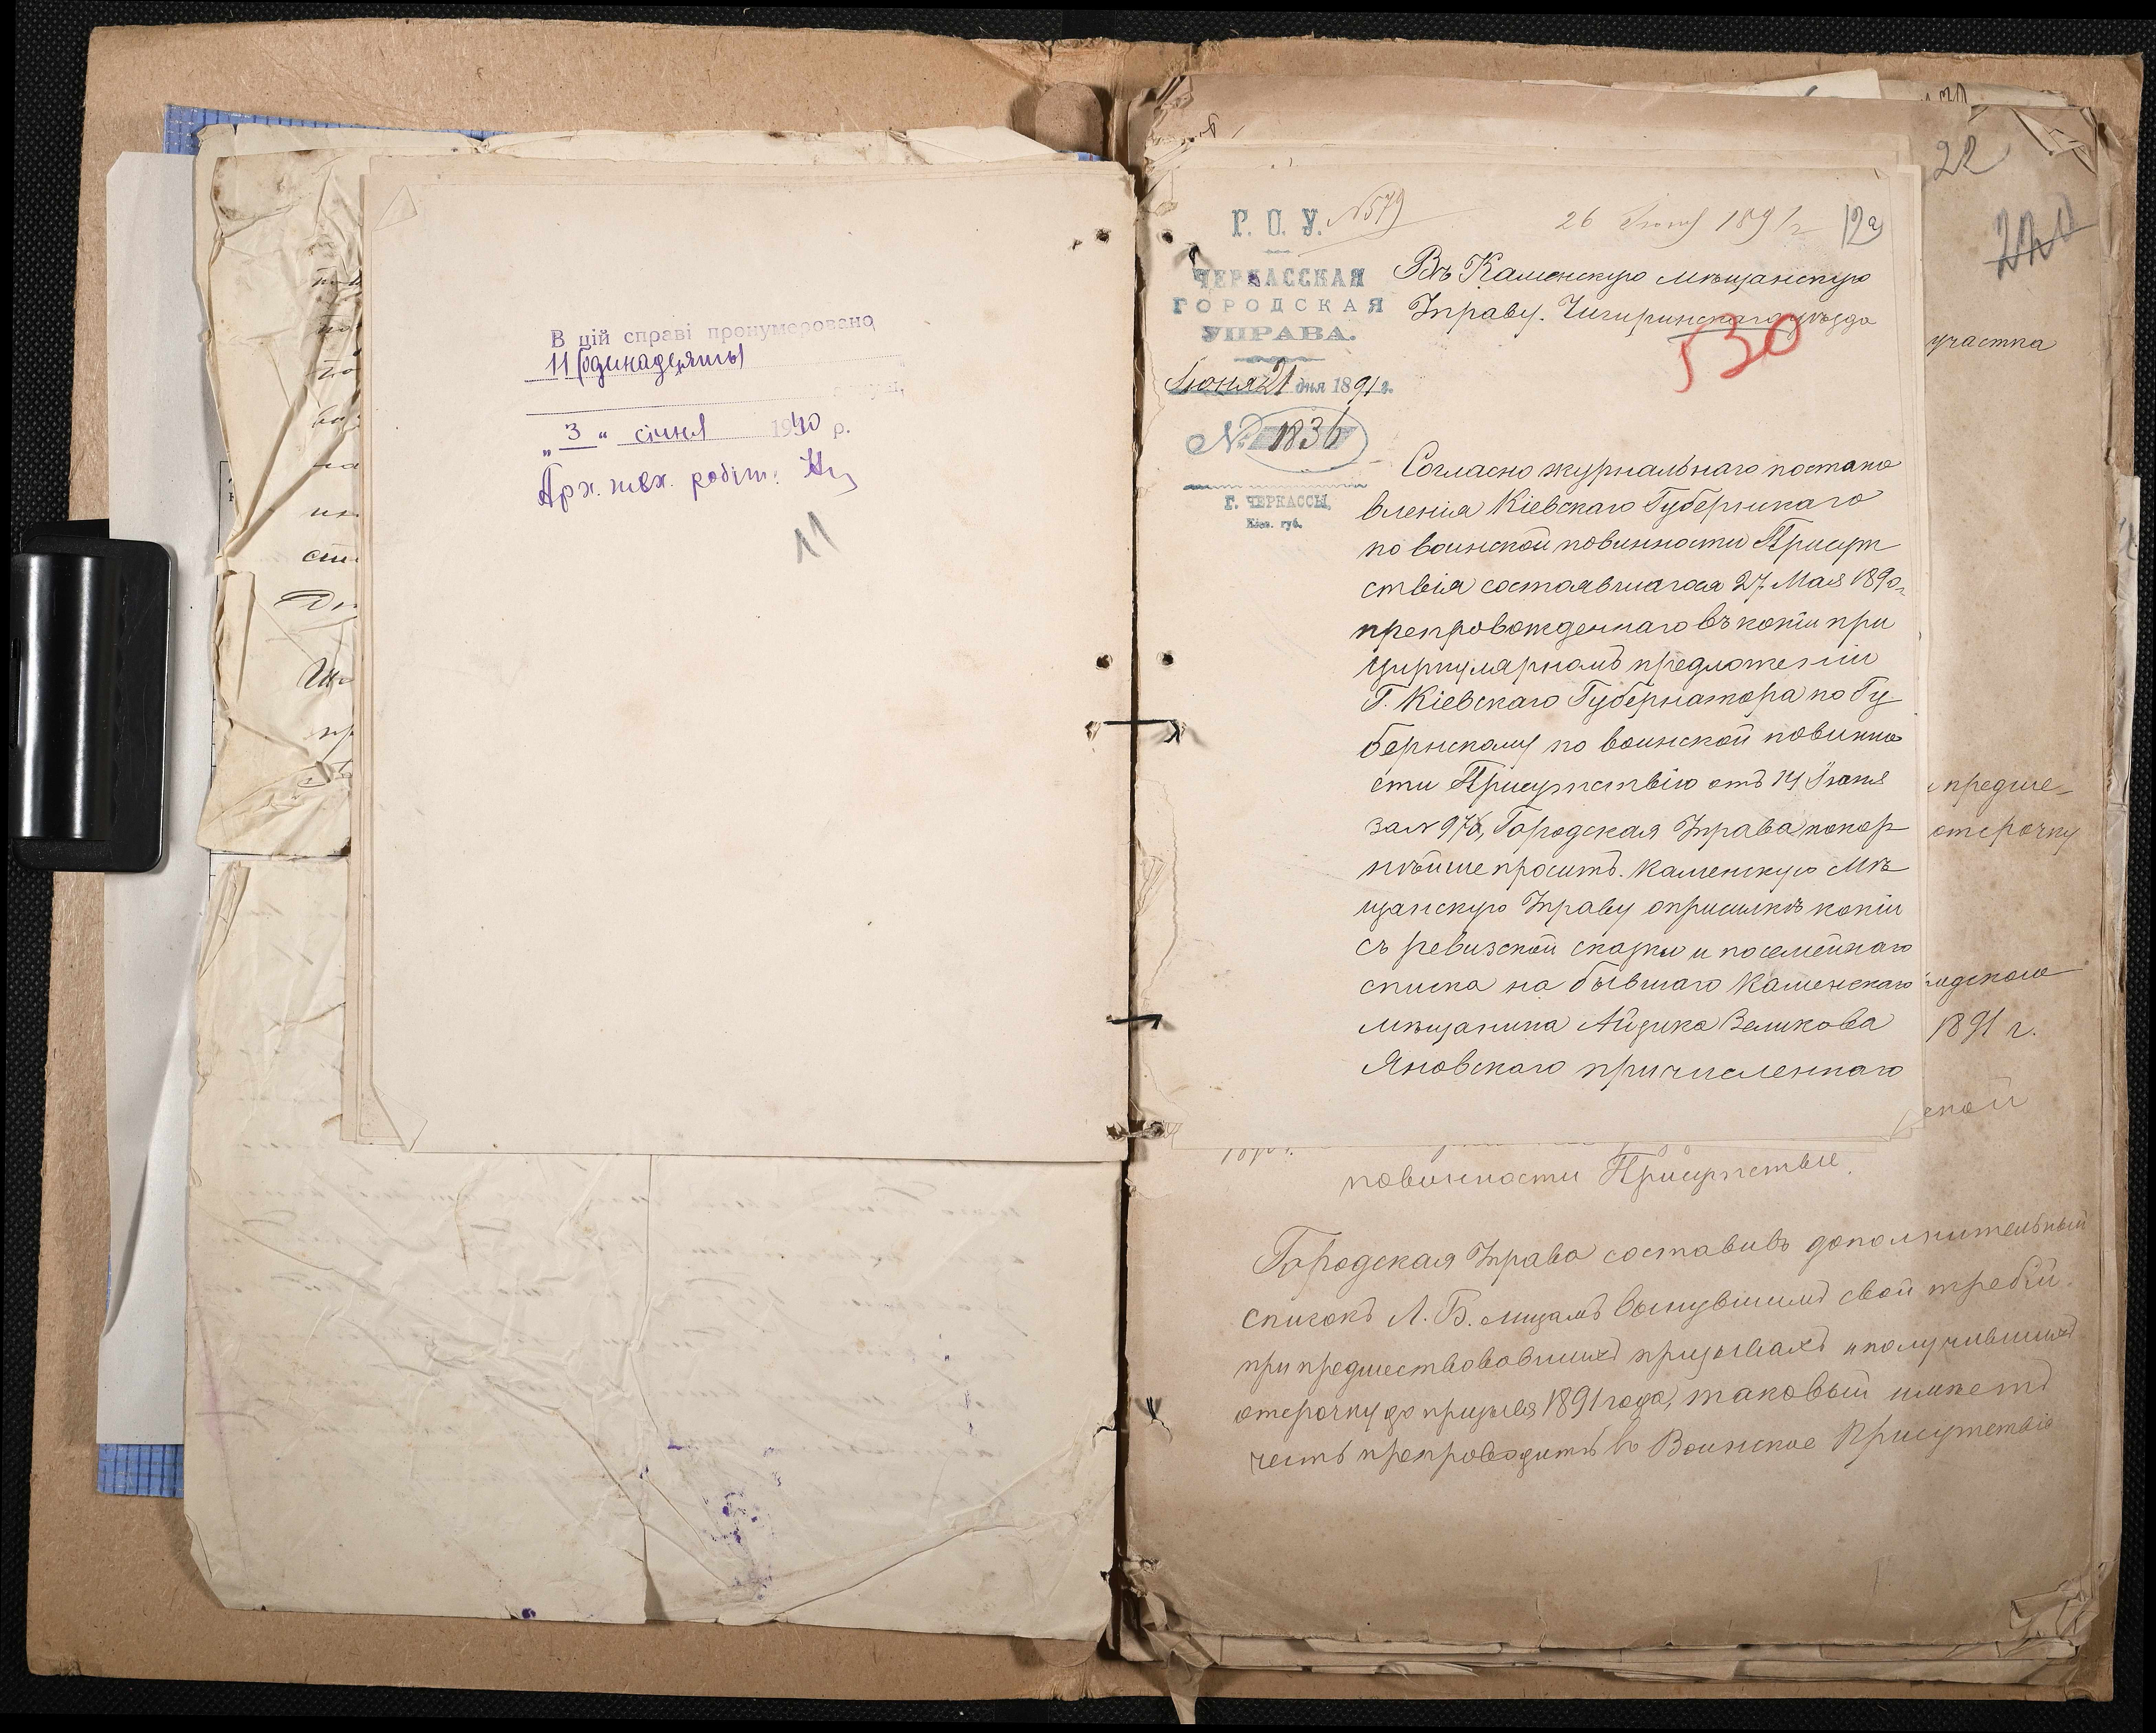 В цій справі пронумеровано
11 (одинадцять)
„ 3 “ січня 1940 р.
Арх. тех. робітн.
11
22
220
Г. О. У.
№ 579
26 Іюня 1891 г
12
ЧЕРКАССКАЯ
ГОРОДСКАЯ
УПРАВА.
Іюня 21 дня 1891 г.
№ 1836
Г. ЧЕРКАССЫ,
Кіев. губ.
Въ Каменскую мѣщанскую
Управу. Чигиринскаго уѣзда
530
Согласно журнальнаго постано
вленія Кіевскаго Губернскаго
по воинской повинности Присут
ствія состоявшагося 27 Мая 1890 г.
препровожденнаго въ копіи при
циркулярномъ предложеніи
Г. Кіевскаго Губернатора по Гу
бернскому по воинской повинно
сти Присутствію отъ 14 Іюня
за № 976, Городская Управа покор
нѣйше проситъ Каменскую Мѣ
щанскую Управу о присылкѣ копіи
съ ревизской сказки и посемейнаго
списка на бывшаго Каменскаго
мѣщанина Айзика Зеликова
Яновскаго причисленнаго
участка
предше-
отсрочку
1891 г.
ской
повинности Присутствіе.
Городская Управа составивъ дополнительный
списокъ А. Б. лицамъ вынувшимъ свой жребій
при предшествовавшихъ призывахъ и получившихъ
отсрочку до призыва 1891 года, таковый имѣетъ
честь препроводить въ Воинское Присутствіе